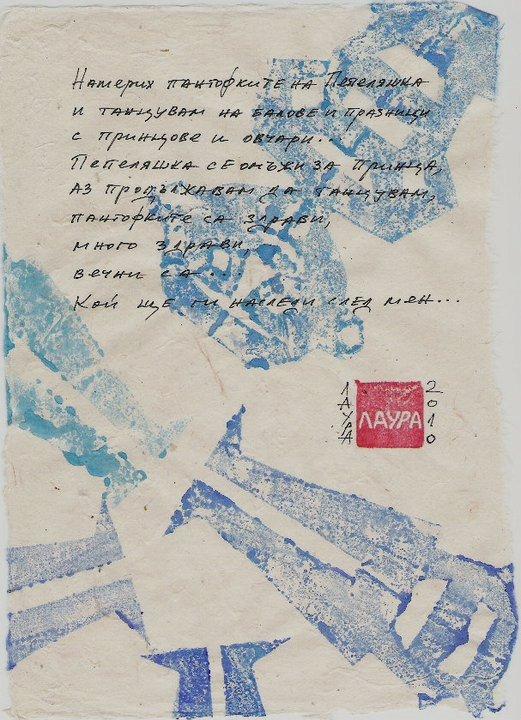 Намерих пантофките на Пепеляшка
и танцувам на балове и празници
с принцове и овчари...
Пепеляшка се омъжи за Принца,
аз продължавам да танцувам,
пантофките са здрави,
много здрави,
вечни са...
Кой ще ги наследи след мен...
ЛАУРА
ЛАУРА
2010